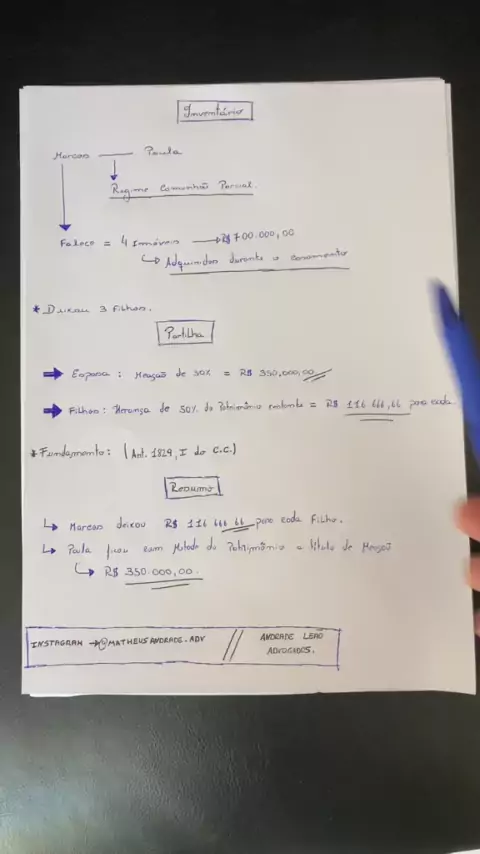 Inventário
Marcos — Paula
Regime Comunhão Parcial.
Faleceu = 4 Imóveis → R$ 700.000,00
↳ Adquiridos durante o casamento
* Deixou 3 Filhos.
Partilha
→ Esposa: Meação de 50% = R$ 350,000,00
→ Filhos: Herança de 50% do Patrimônio restante = R$ 116 666,66 para cada.
* Fundamento: (Art. 1829, I do C.C.)
Resumo
↳ Marcos deixou R$ 116 666 66 para cada Filho.
↳ Paula ficou com Metade do Patrimônio a título de Meação
↳ R$ 350.000,00.
INSTAGRAM → @MATHEUSANDRADE.ADV // ANDRADE LEÃO
ADVOGADOS.